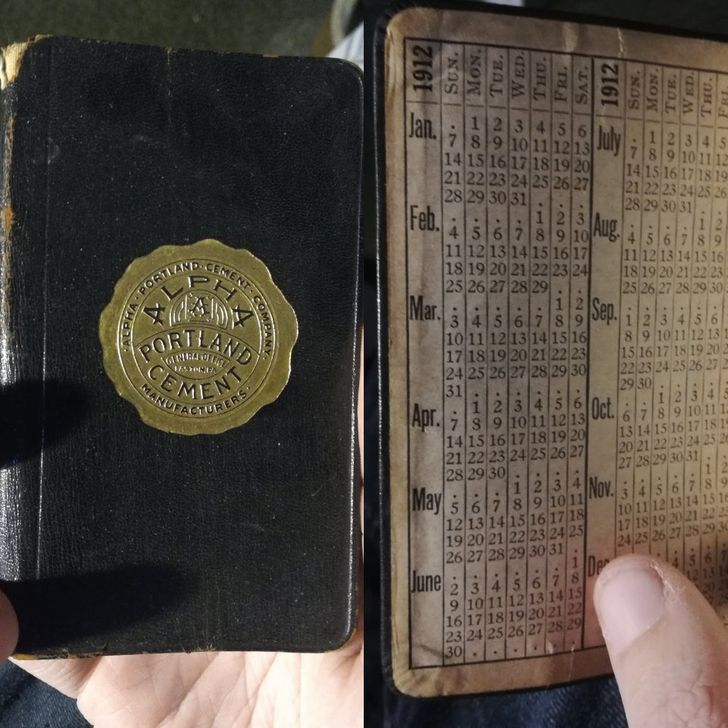 ALPHA · PORTLAND · CEMENT · COMPANY
ALPHA
A
PORTLAND
GENERAL OFFICE
EASTON, PA.
CEMENT
MANUFACTURERS
1912 SUN. MON. TUE. WED. THU. FRI. SAT.
Jan. . 1 2 3 4 5 6
7 8 9 10 11 12 13
14 15 16 17 18 19 20
21 22 23 24 25 26 27
28 29 30 31 . . .
Feb. . . . . 1 2 3
4 5 6 7 8 9 10
11 12 13 14 15 16 17
18 19 20 21 22 23 24
25 26 27 28 29 . .
Mar. . . . . . 1 2
3 4 5 6 7 8 9
10 11 12 13 14 15 16
17 18 19 20 21 22 23
24 25 26 27 28 29 30
31 . . . . . .
Apr. . 1 2 3 4 5 6
7 8 9 10 11 12 13
14 15 16 17 18 19 20
21 22 23 24 25 26 27
28 29 30 . . . .
May . . . 1 2 3 4
5 6 7 8 9 10 11
12 13 14 15 16 17 18
19 20 21 22 23 24 25
26 27 28 29 30 31 .
June . . . . . . 1
2 3 4 5 6 7 8
9 10 11 12 13 14 15
16 17 18 19 20 21 22
23 24 25 26 27 28 29
30 . . . . . .
1912 SUN. MON. TUE. WED. THU.
July . 1 2 3 4 5
7 8 9 10 11
14 15 16 17 18
21 22 23 24 25
28 29 30 31
Aug.
4 5 6 7 8
11 12 13 14 15
18 19 20 21 22
25 26 27 28 29
Sep. 1 2 3 4 5 6
8 9 10 11 12
15 16 17 18 19
22 23 24 25 26
29 30
Oct. . . 1 2 3
6 7 8 9 10
13 14 15 16 17
20 21 22 23 24
27 28 29 30 31
Nov.
3 4 5 6 7 8
10 11 12 13 14
17 18 19 20 21
24 25 26 27 28